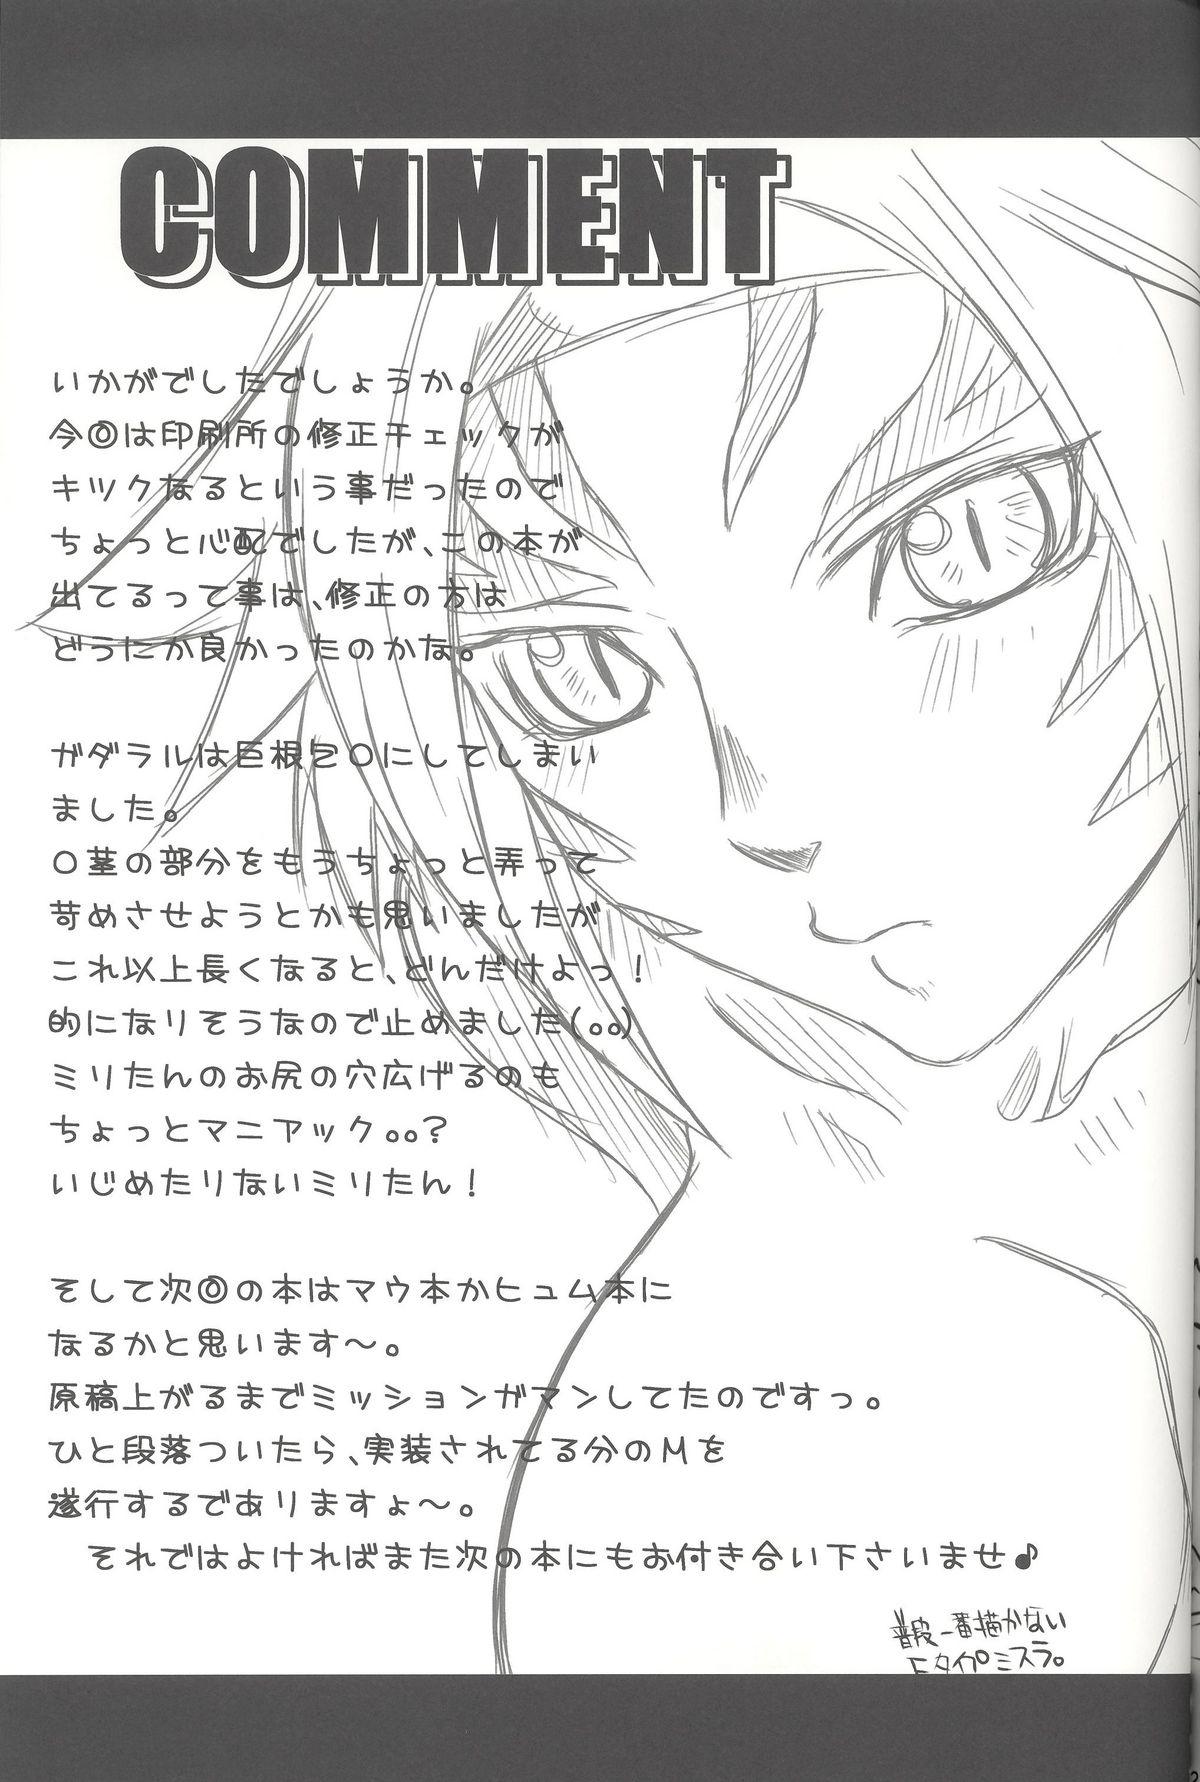 COMMENT
いかがでしたでしょうか。
今回は印刷所の修正チェックが
キツクなるという事だったので
ちょっと心配でしたが、この本が
出てるって事は、修正の方は
どうにか良かったのかな。
ガダラルは巨根包〇にしてしまい
ました。
〇茎の部分をもうちょっと弄って
苛めさせようとかも思いましたが
これ以上長くなると、どんだけよっ！
的になりそうなので止めました(。。)
ミリたんのお尻の穴広げるのも
ちょっとマニアック。。？
いじめたりないミリたん！
そして次回の本はマウ本かヒュム本に
なるかと思います～。
原稿上がるまでミッションガマンしてたのですっ。
ひと段落ついたら、実装されてる分のMを
遂行するでありますょ～。
それではよければまた次の本にもお付き合い下さいませ♪
普段一番描かない
Fタイプミスラ。